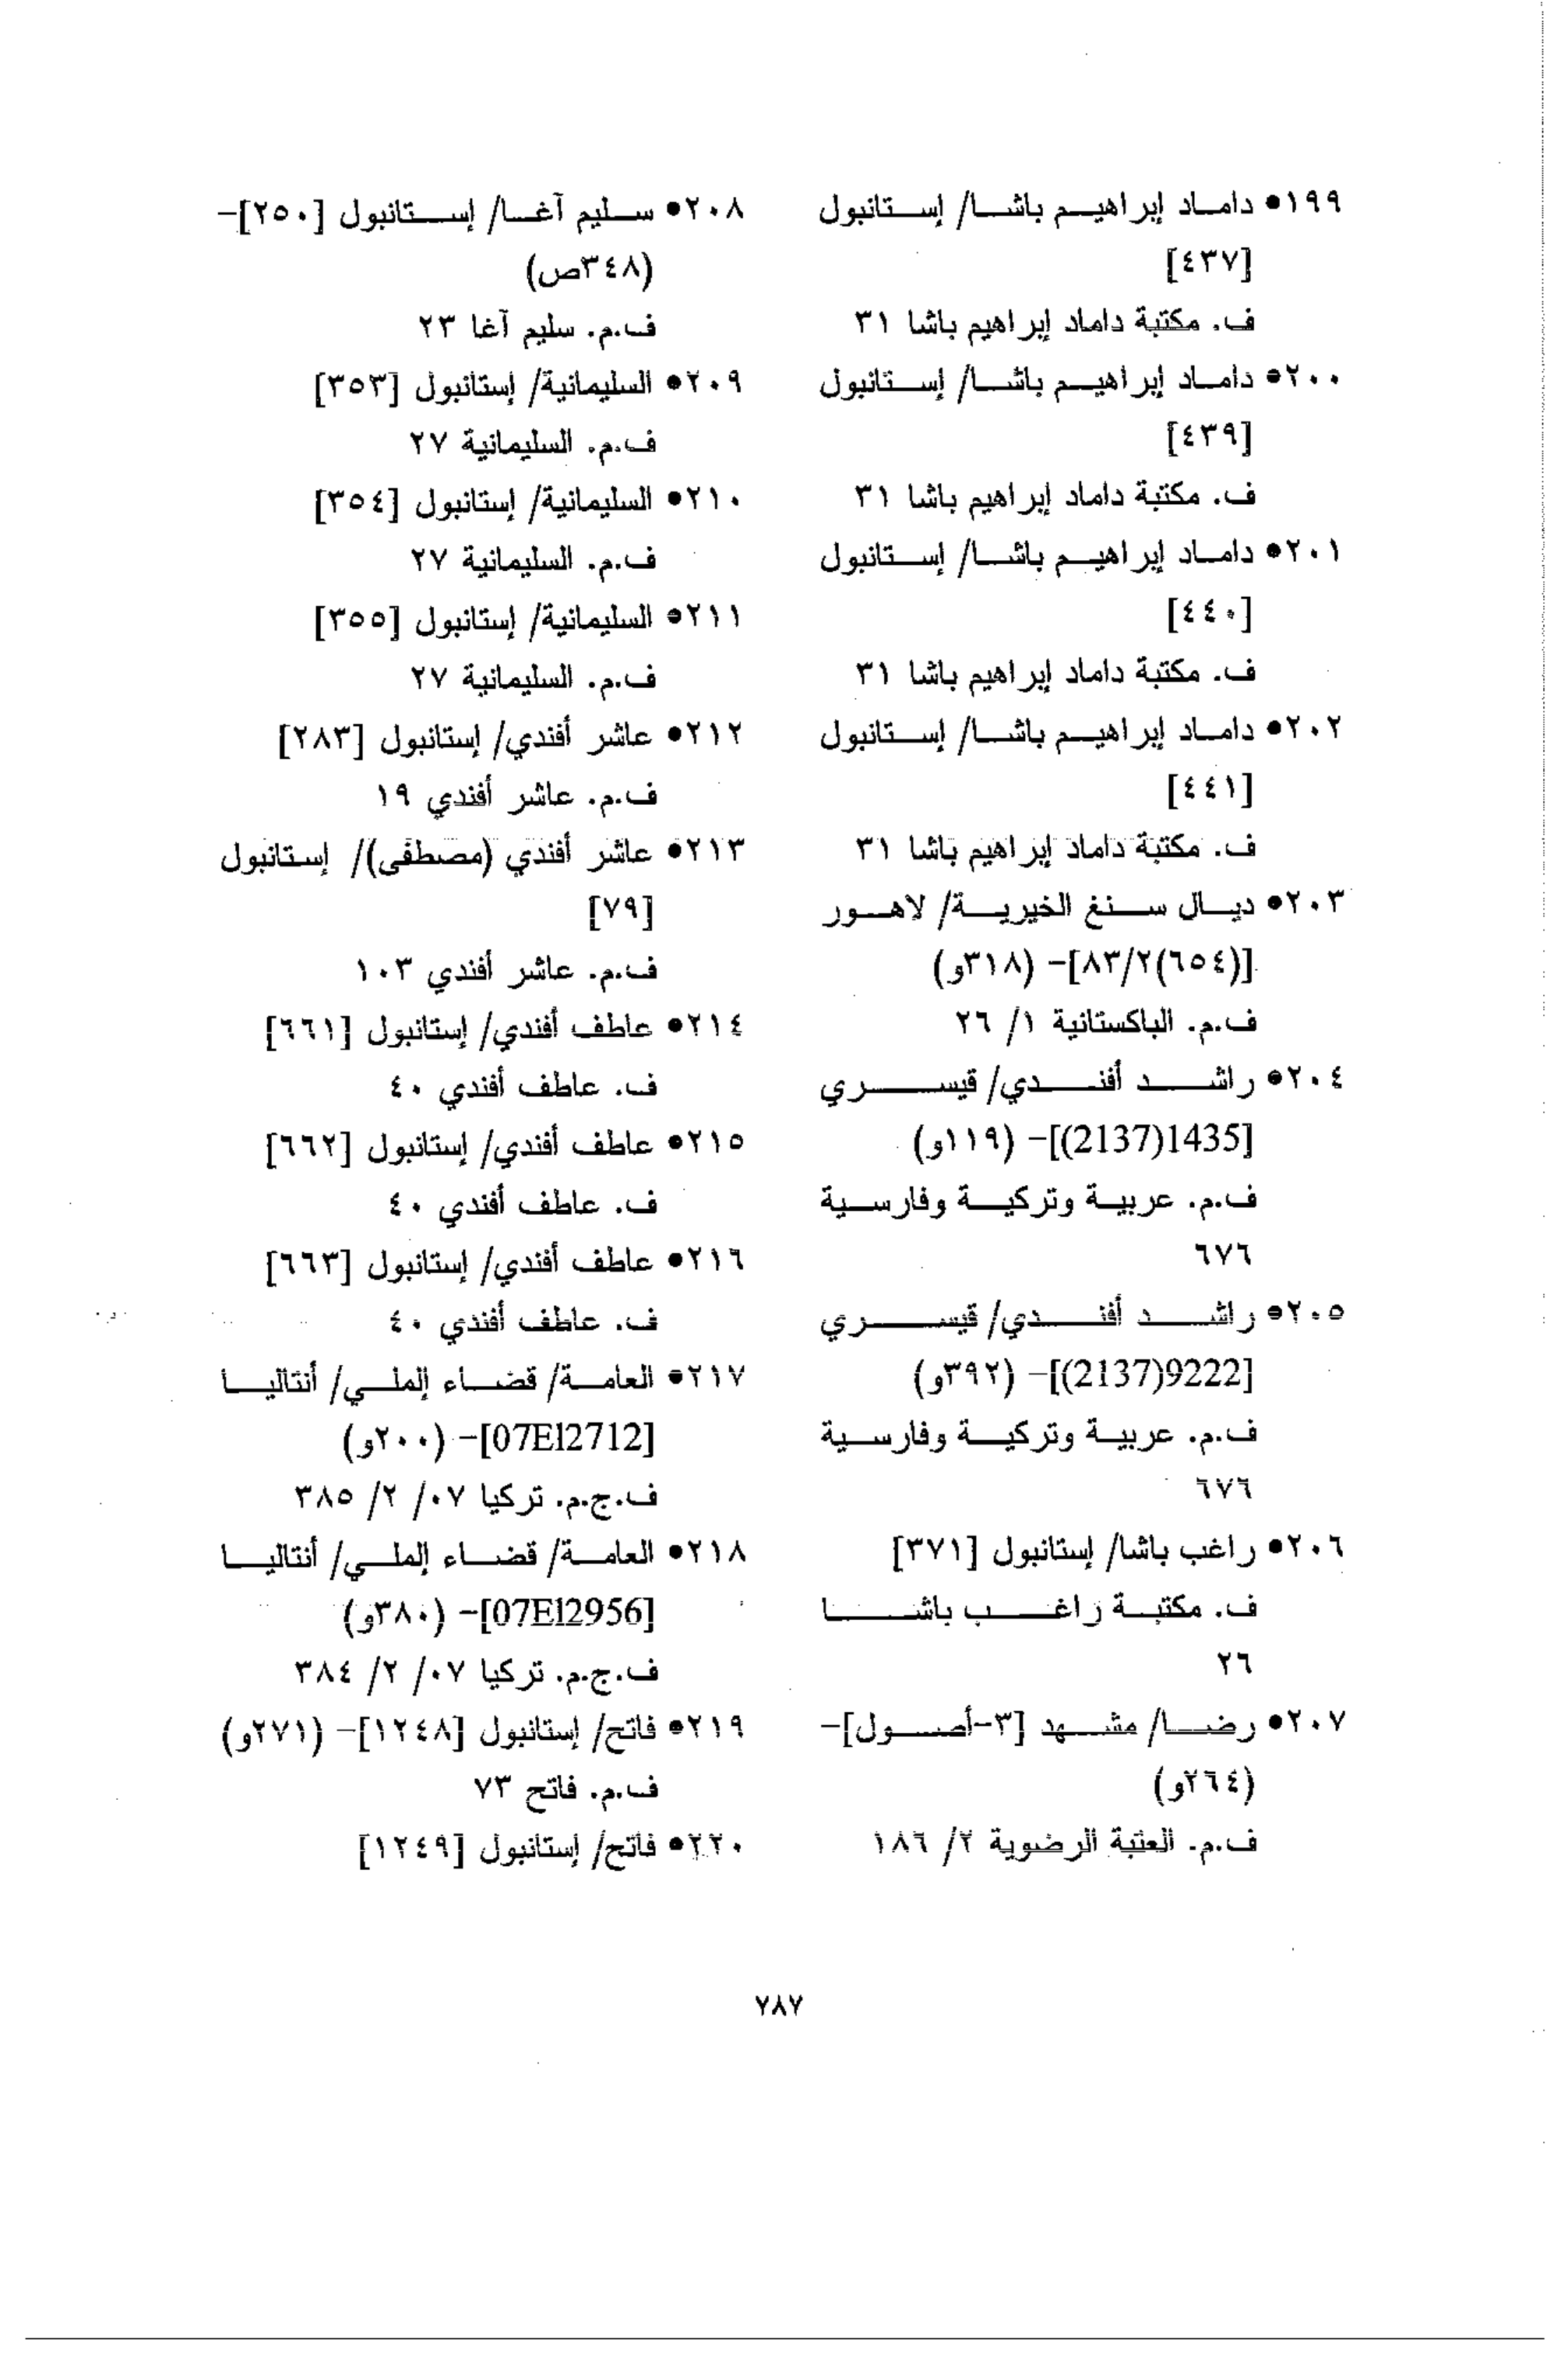 ١٩٩● داماد إبراهيم باشا/ إستانبول
[٤٣٧]
ف. مكتبة داماد إبراهيم باشا ٣١
٢٠٠● داماد إبراهيم باشا/ إستانبول
[٤٣٩]
ف. مكتبة داماد إبراهيم باشا ٣١
٢٠١● داماد إبراهيم باشا/ إستانبول
[٤٤٠]
ف. مكتبة داماد إبراهيم باشا ٣١
٢٠٢● داماد إبراهيم باشا/ إستانبول
[٤٤١]
ف. مكتبة داماد إبراهيم باشا ٣١
٢٠٣● ديال سنغ الخيرية/ لاهور
[(٦٥٤)٨٣/٢]– (٣١٨و)
ف.م. الباكستانية ١/ ٢٦
٢٠٤● راشد أفندي/ قيسري
[1435(2137)]– (١١٩و)
ف.م. عربية وتركية وفارسية
٦٧٦
٢٠٥● راشد أفندي/ قيسري
[9222(2137)]– (٣٩٢و)
ف.م. عربية وتركية وفارسية
٦٧٦
٢٠٦● راغب باشا/ إستانبول [٣٧١]
ف. مكتبة راغب باشا
٢٦
٢٠٧● رضا/ مشهد [٣–أصول]–
(٢٦٤و)
ف.م. العتبة الرضوية ٢/ ١٨٦
٢٠٨● سليم آغا/ إستانبول [٢٥٠]–
(٣٤٨ص)
ف.م. سليم آغا ٢٣
٢٠٩● السليمانية/ إستانبول [٣٥٣]
ف.م. السليمانية ٢٧
٢١٠● السليمانية/ إستانبول [٣٥٤]
ف.م. السليمانية ٢٧
٢١١● السليمانية/ إستانبول [٣٥٥]
ف.م. السليمانية ٢٧
٢١٢● عاشر أفندي/ إستانبول [٢٨٣]
ف.م. عاشر أفندي ١٩
٢١٣● عاشر أفندي (مصطفى)/ إستانبول
[٧٩]
ف.م. عاشر أفندي ١٠٣
٢١٤● عاطف أفندي/ إستانبول [٦٦١]
ف. عاطف أفندي ٤٠
٢١٥● عاطف أفندي/ إستانبول [٦٦٢]
ف. عاطف أفندي ٤٠
٢١٦● عاطف أفندي/ إستانبول [٦٦٣]
ف. عاطف أفندي ٤٠
٢١٧● العامة/ قضاء إلملي/ أنتاليا
[07El2712]– (٢٠٠و)
ف.ج.م. تركيا ٠٧/ ٢/ ٣٨٥
٢١٨● العامة/ قضاء إلملي/ أنتاليا
[07El2956]– (٣٨٠و)
ف.ج.م. تركيا ٠٧/ ٢/ ٣٨٤
٢١٩● فاتح/ إستانبول [١٢٤٨]– (٢٧١و)
ف.م. فاتح ٧٣
٢٢٠● فاتح/ إستانبول [١٢٤٩]
٧٨٧